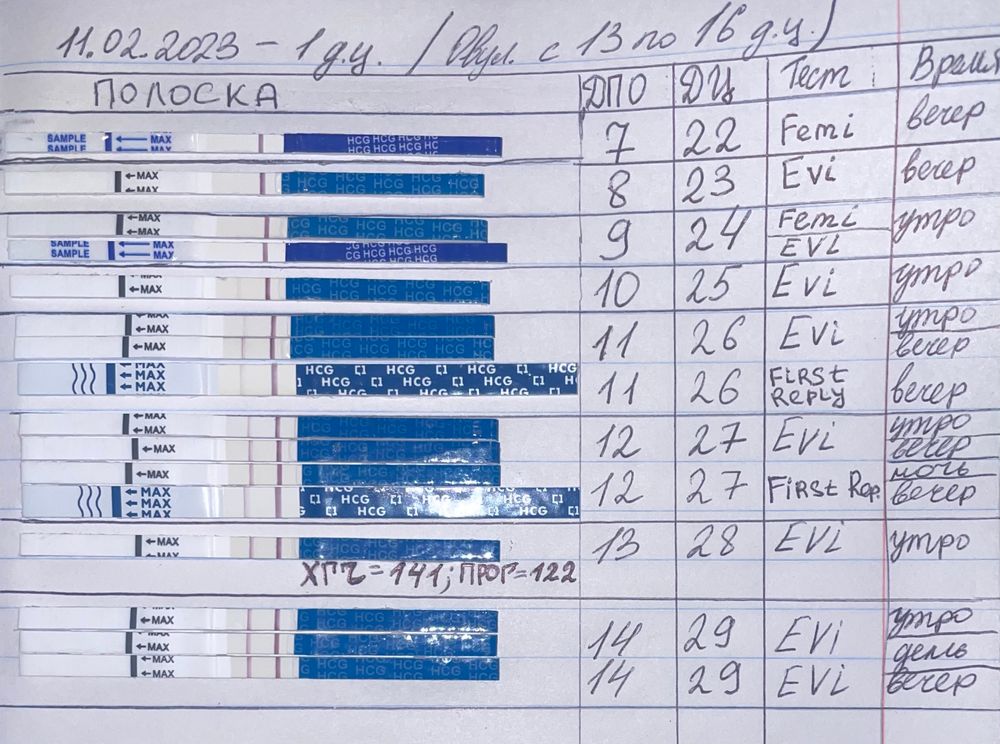 11.02.2023 – 1 д.ц. / (Овул. с 13 по 16 д.ц.)
ПОЛОСКА ДПО ДЦ Тест Время
SAMPLE MAX HCG HCG HCG HC 7 22 Femi вечер
SAMPLE MAX HCG HCG HCG HC
MAX HCG HCG HCG HCG 8 23 Evi вечер
MAX HCG HCG HCG HCG 9 24 Femi утро
SAMPLE MAX CG HCG HCG HCG EVi
SAMPLE MAX CG HCG HCG HCG
MAX HCG HCG HCG HCG 10 25 Evi утро
MAX 11 26 Evi утро
MAX вечер
MAX HCG HCG HCG 11 26 FiRSt Reply вечер
MAX HCG HCG HCG
MAX
MAX HCG HCG HCG HCG 12 27 EVi утро
MAX вечер
MAX HCG HCG HCG HCG ночь
MAX HCG HCG 12 27 FiRSt Rep. вечер
MAX HCG HCG HCG
MAX
MAX HCG HCG HCG HCG 13 28 EVi утро
ХГЧ = 141; ПРОГ = 122
MAX HCG HCG HCG HCG 14 29 EVi утро
MAX HCG HCG HCG HCG день
MAX HCG HCG HCG HCG 14 29 EVi вечер